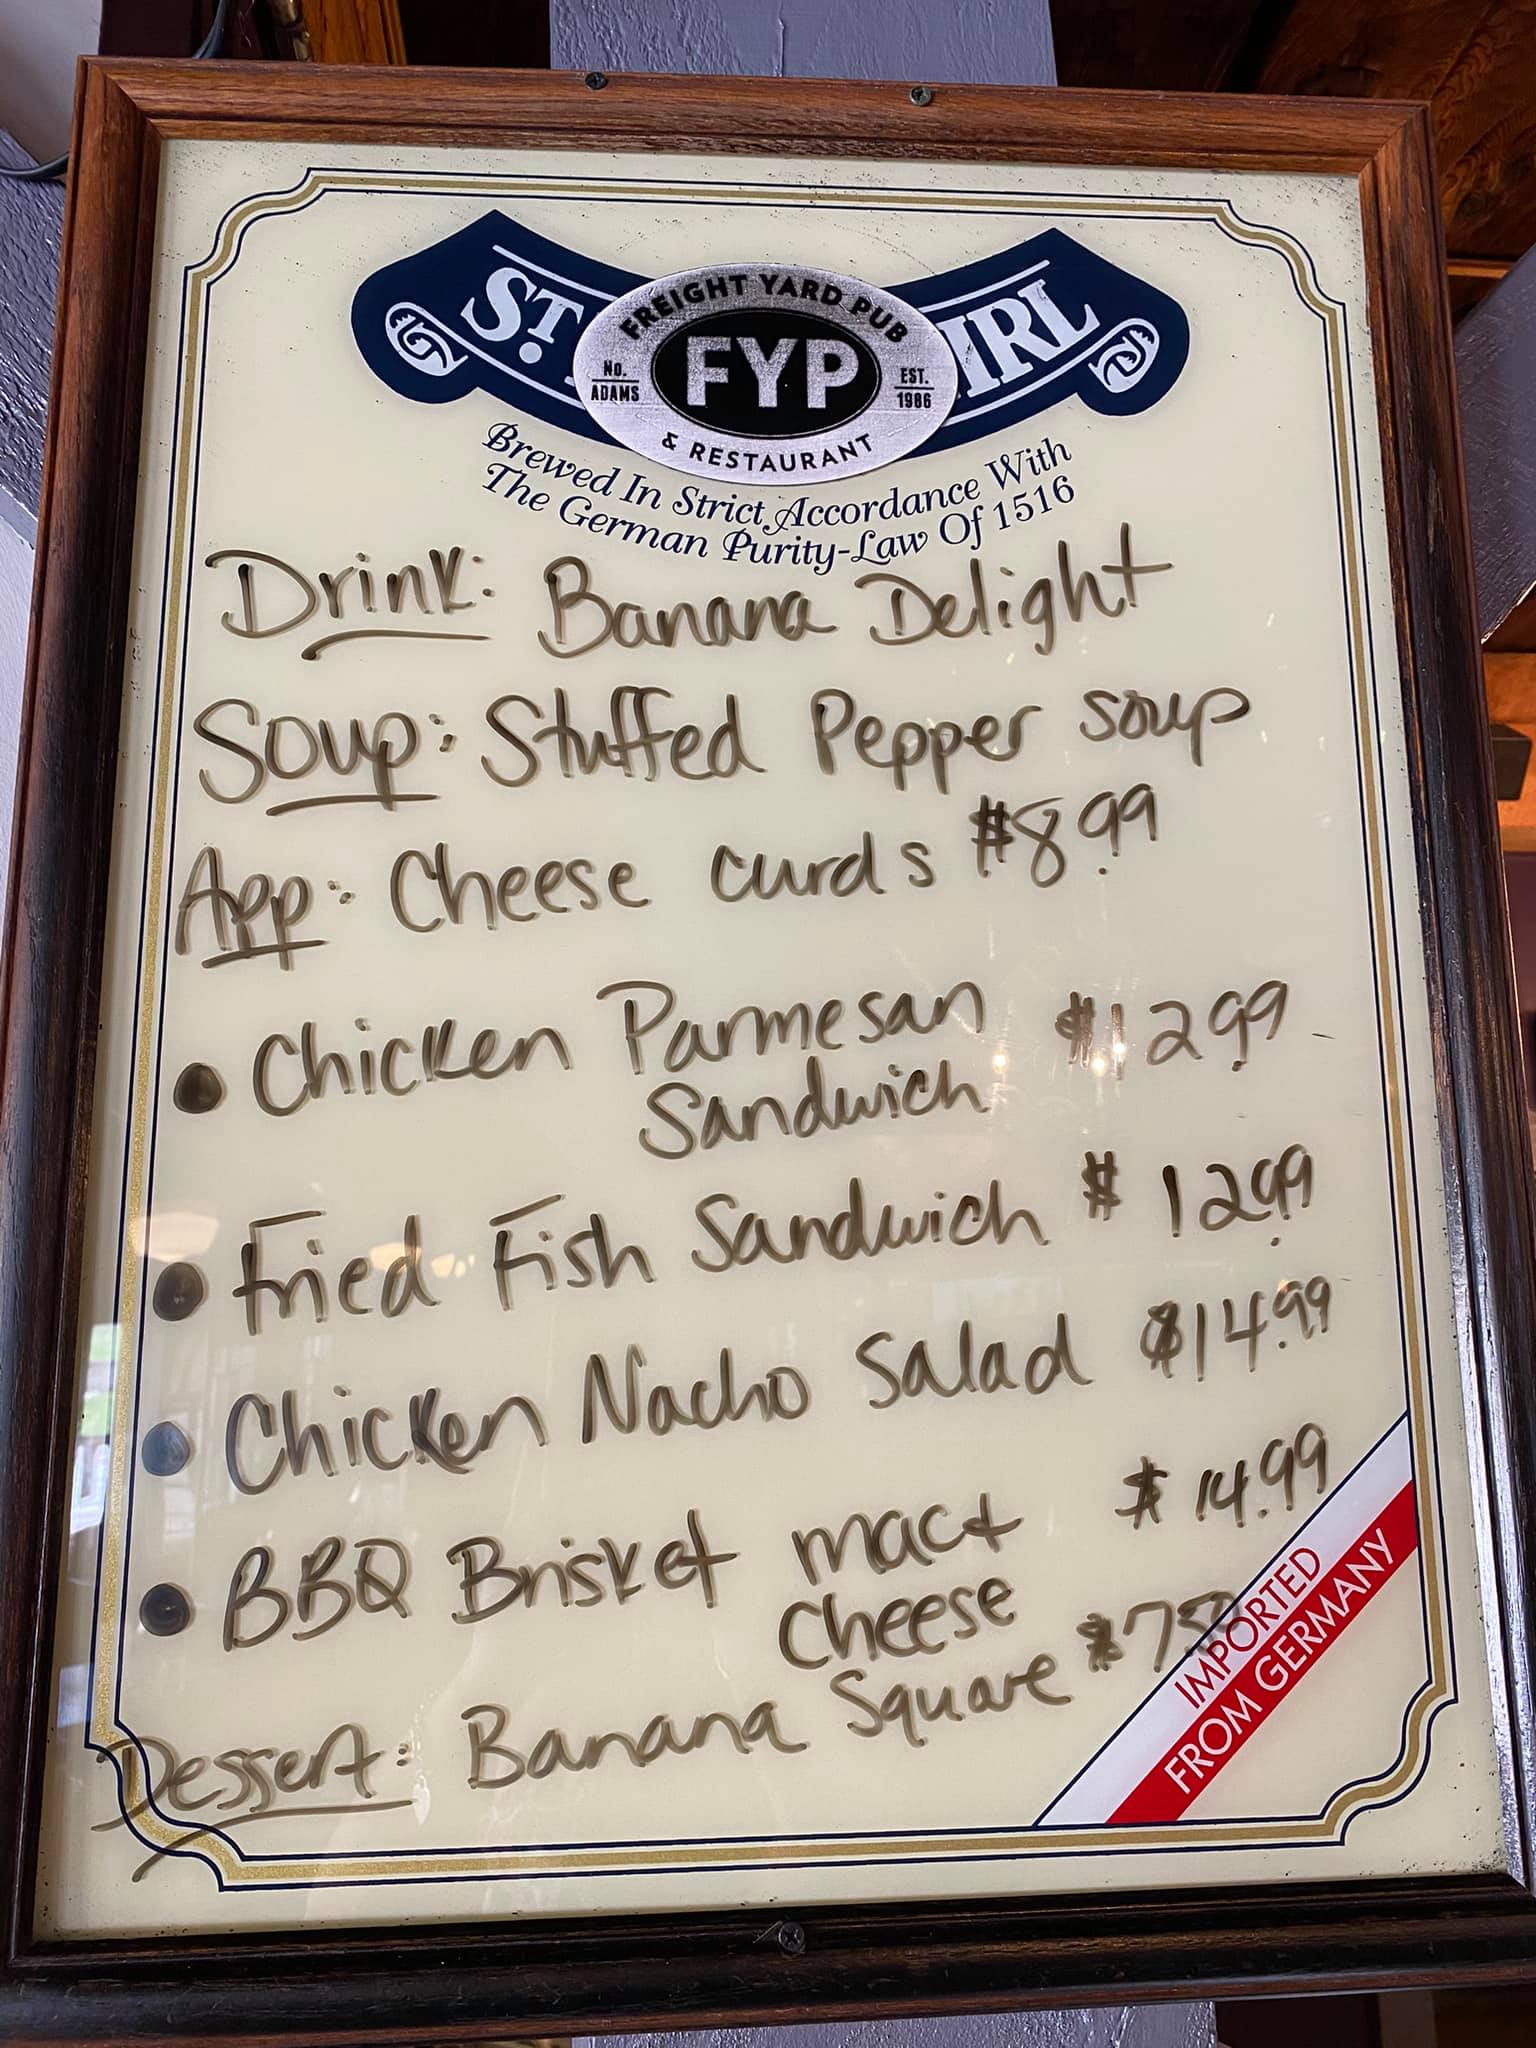 ST. IRL
FREIGHT YARD PUB
NO. ADAMS
FYP
EST. 1986
& RESTAURANT
Brewed In Strict Accordance With
The German Purity-Law Of 1516
Drink: Banana Delight
Soup: Stuffed Pepper soup
App: Cheese curds $8.99
• Chicken Parmesan $12.99
Sandwich
• Fried Fish Sandwich $12.99
• Chicken Nacho Salad $14.99
• BBQ Brisket mac + $14.99
Cheese
Dessert: Banana Square $7.50
IMPORTED
FROM GERMANY